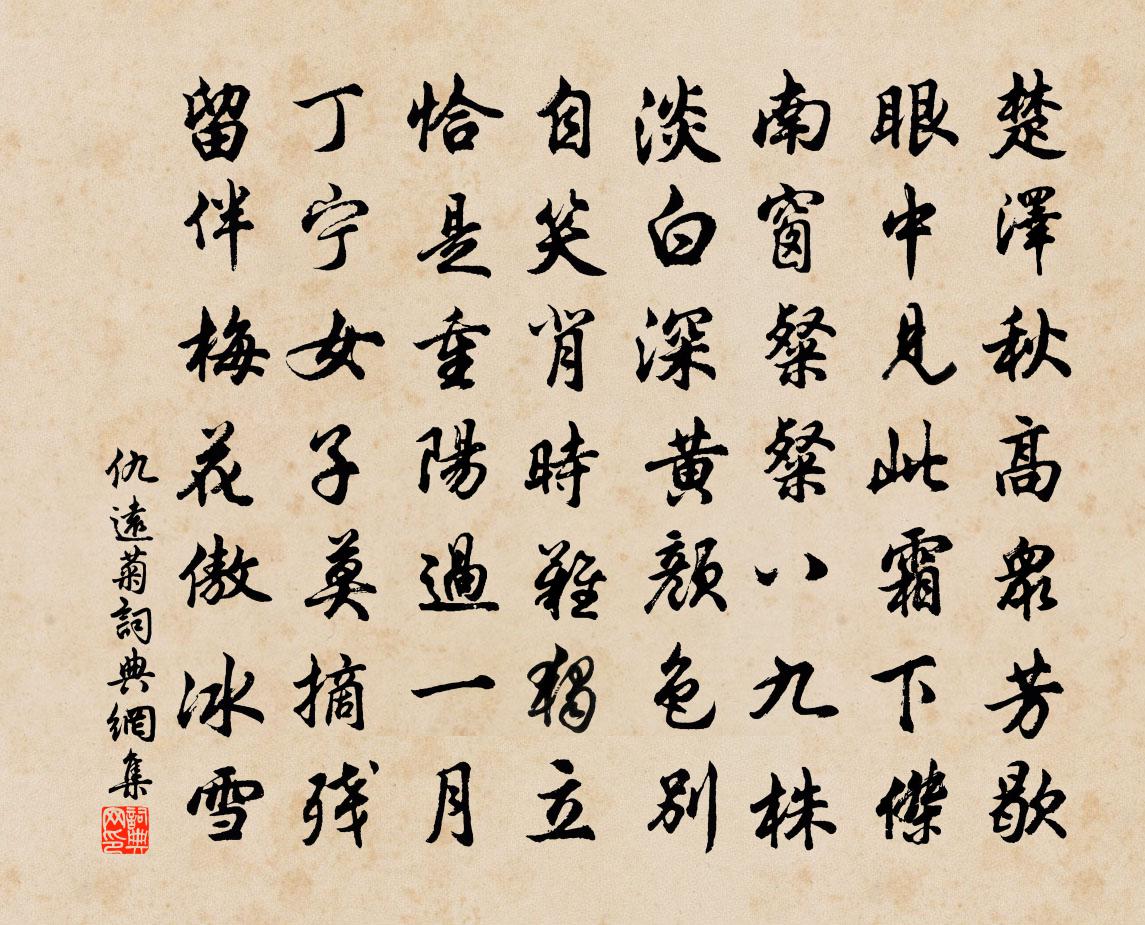 楚澤秋高衆芳歇
眼中見此霜下傑
南窗粲粲八九株
淡白深黄顔色别
自笑背時難獨立
恰是重陽過一月
丁宁女子莫摘残
留伴梅花傲冰雪
仇遠菊詞典網集
詞典網印